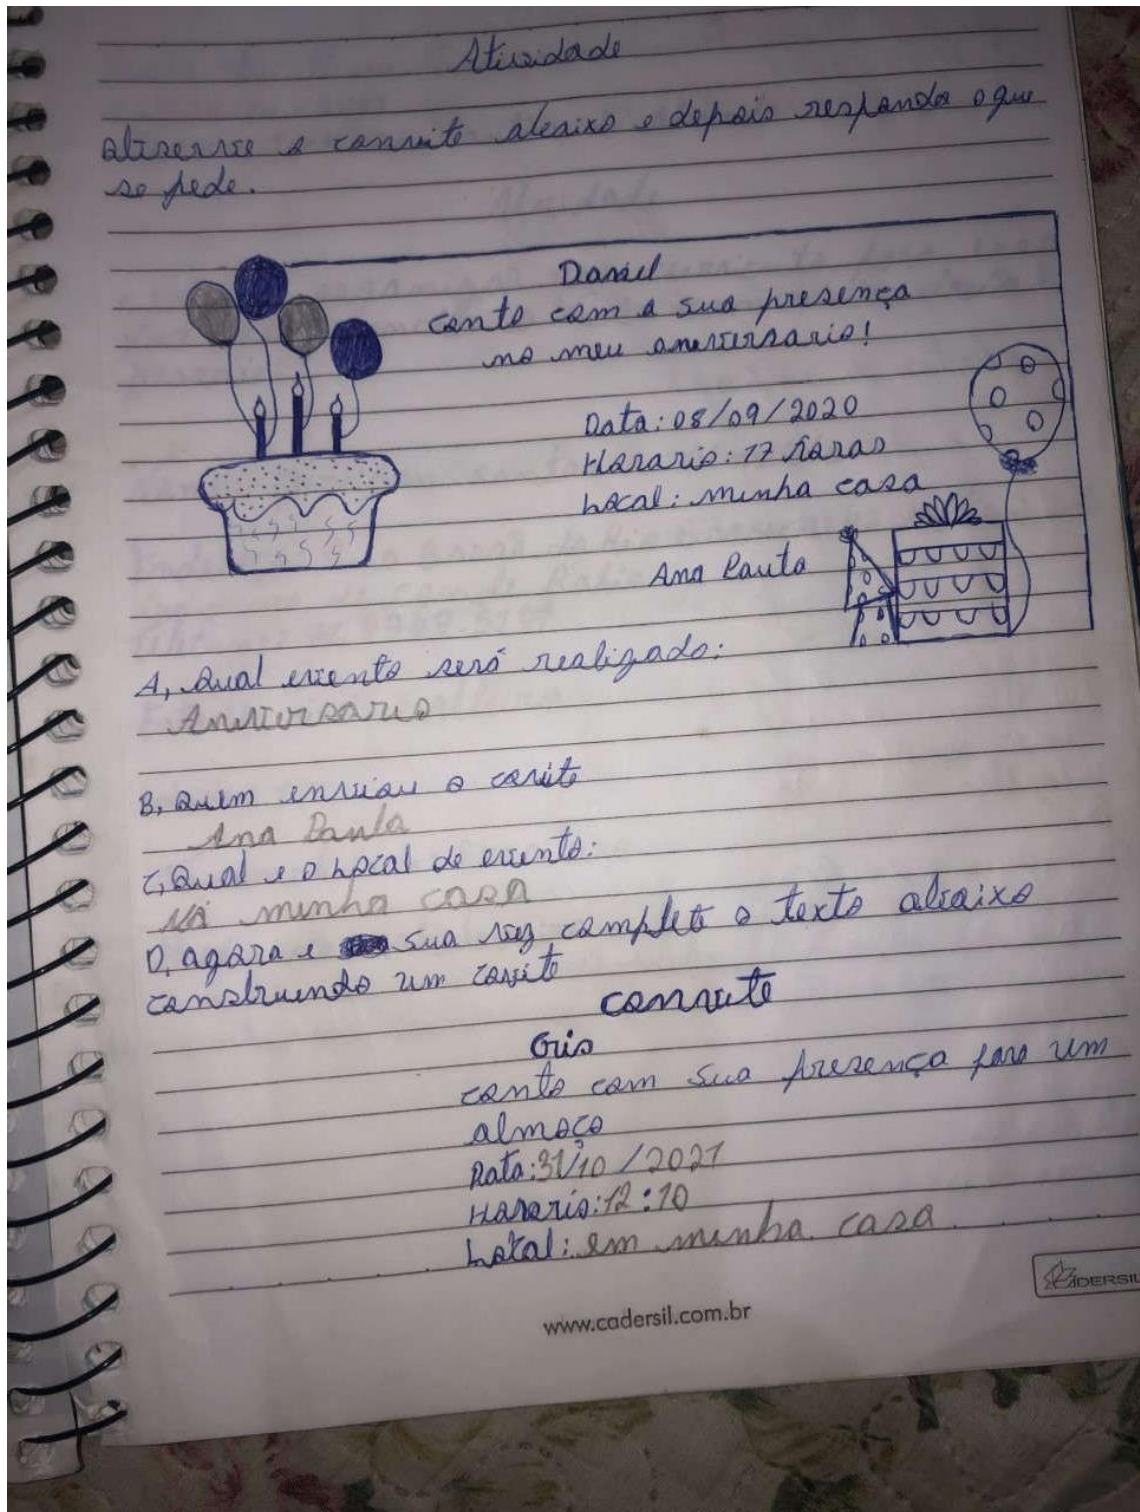 Atividade
observe o convite abaixo e depois responda o que
se pede.
Daniel
conto com a sua presença
no meu aniversario!
Data: 08/09/2020
Horario: 17 horas
Local: minha casa
Ana Paula
A, Qual evento será realizado:
Aniversario
B, Quem enviou o convite
Ana Paula
C, Qual e o Local de evento:
Ná minha casa
D, agora e sua vez complete o texto abaixo
construindo um convite
convite
Oris
conto com sua presença para um
almoço
Data: 31/10/2021
Horario: 12:10
Local: em minha casa
CADERSIL
www.cadersil.com.br